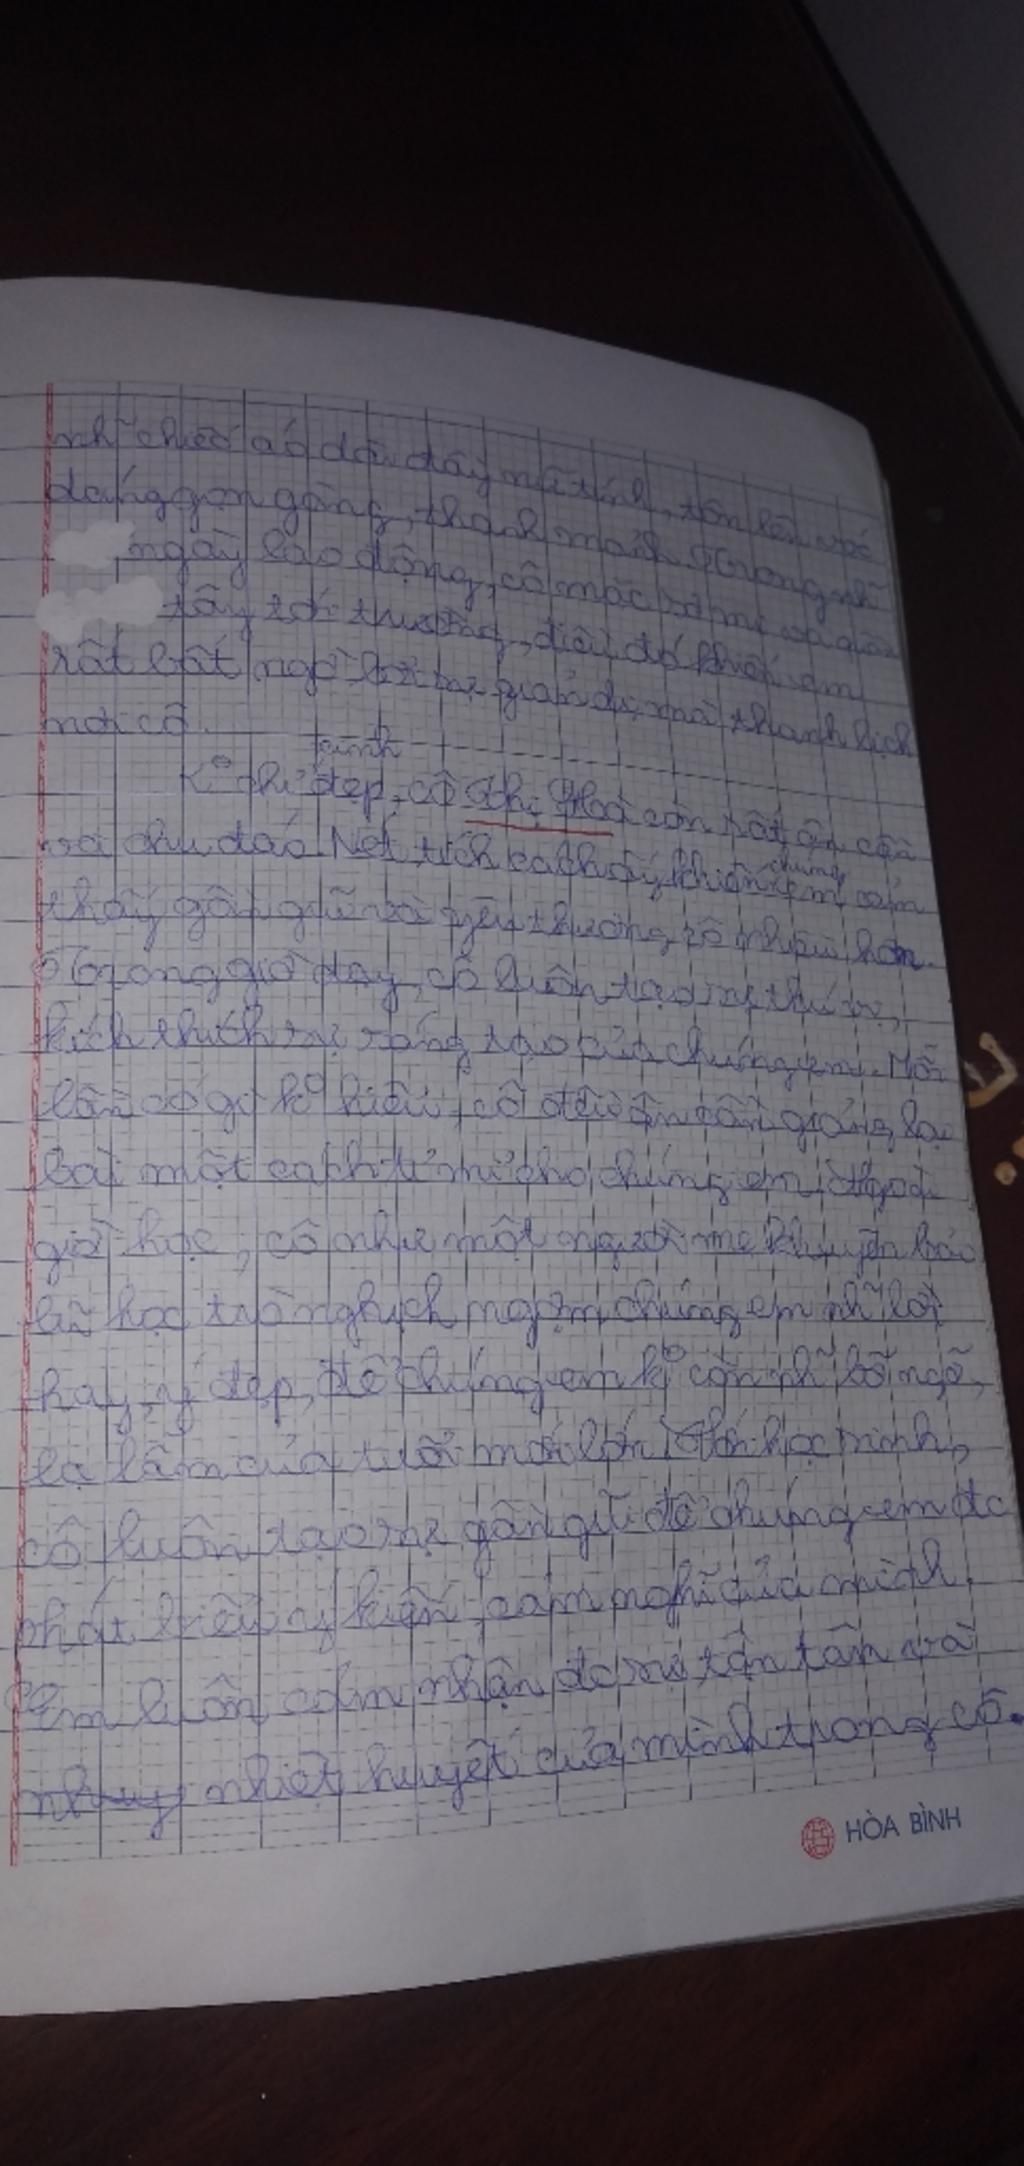 nh~ chiếc áo dài đầy nữ tính, tôn lên vóc
dáng gọn gàng, thanh mảnh. Trong nh~
ngày lao động, cô mặc sơ mi và quần
tây tới trường, điều đó khiến em
rất bất ngờ bởi sự giản dị mà thanh lịch
nơi cô.
xinh
K° chỉ đẹp, cô Thị Hoà còn rất ân cần
và chu đáo. Nét tích cách ấy khiến chúng em cảm
thấy gần gũi và yêu thương cô nhiều hơn.
Trong giờ dạy, cô luôn tạo sự thú vị,
kích thích sự sáng tạo của chúng em. Mỗi
lần có gì k° hiểu, cô đều ân cần giảng lại
bài một cách tỉ mỉ cho chúng em. Ngoài
giờ học, cô như một người mẹ khuyên bảo
lũ học trò nghịch ngợm chúng em nh~ lời
hay, ý đẹp, để chúng em k° còn nh~ bỡ ngỡ,
lạ lẫm của tuổi mới lớn. Với học sinh,
cô luôn tạo sự gần gũi để chúng em đc
phát biểu ý kiến, cảm nghĩ của mình.
Em luôn cảm nhận đc sự tận tâm và
nhiệt huyết của mình trong cô.
HÒA BÌNH